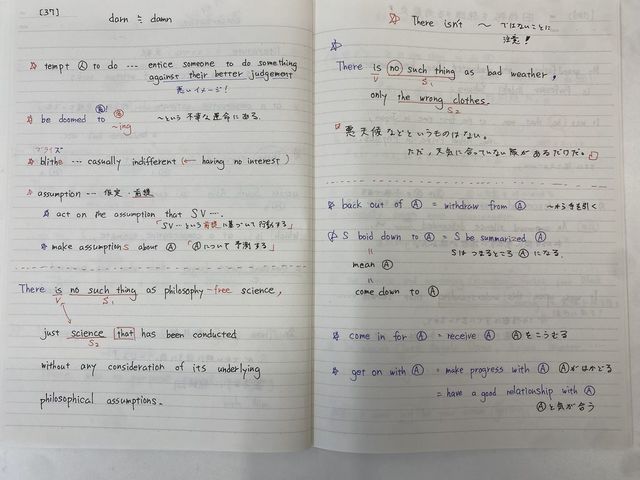 [37]
darn ≒ damn
☆ tempt Ⓐ to do … entice someone to do something
against their better judgement
悪いイメージ!
☆ be doomed to
~ing
~という 不幸な運命にある.
ブライズ
☆ blithe … casually indifferent (← having no interest)
☆ assumption … 仮定・前提
☆ act on the assumption that SV….
「SV…という前提に基づいて行動する」
☆ make assumptions about Ⓐ 「Ⓐについて予測する」
There is no such thing as philosophy-free science,
V S₁
just science that has been conducted
S₂
without any consideration of its underlying
philosophical assumptions.
☆ There isn't ~ ではないことに
注意!
☆
There is no such thing as bad weather,
V S₁
only the wrong clothes.
S₂
悪天候などというものはない。
ただ、天気に合っていない服があるだけだ。
☆ back out of Ⓐ = withdraw from Ⓐ ~から手を引く
☆ S boid down to Ⓐ = S be summarized Ⓐ
Sは つまるところ Ⓐ になる.
=
mean Ⓐ
=
come down to Ⓐ
☆ come in for Ⓐ = receive Ⓐ Ⓐをこうむる
☆ get on with Ⓐ = make progress with Ⓐ Ⓐがはかどる
= have a good relationship with Ⓐ
Ⓐと気が合う